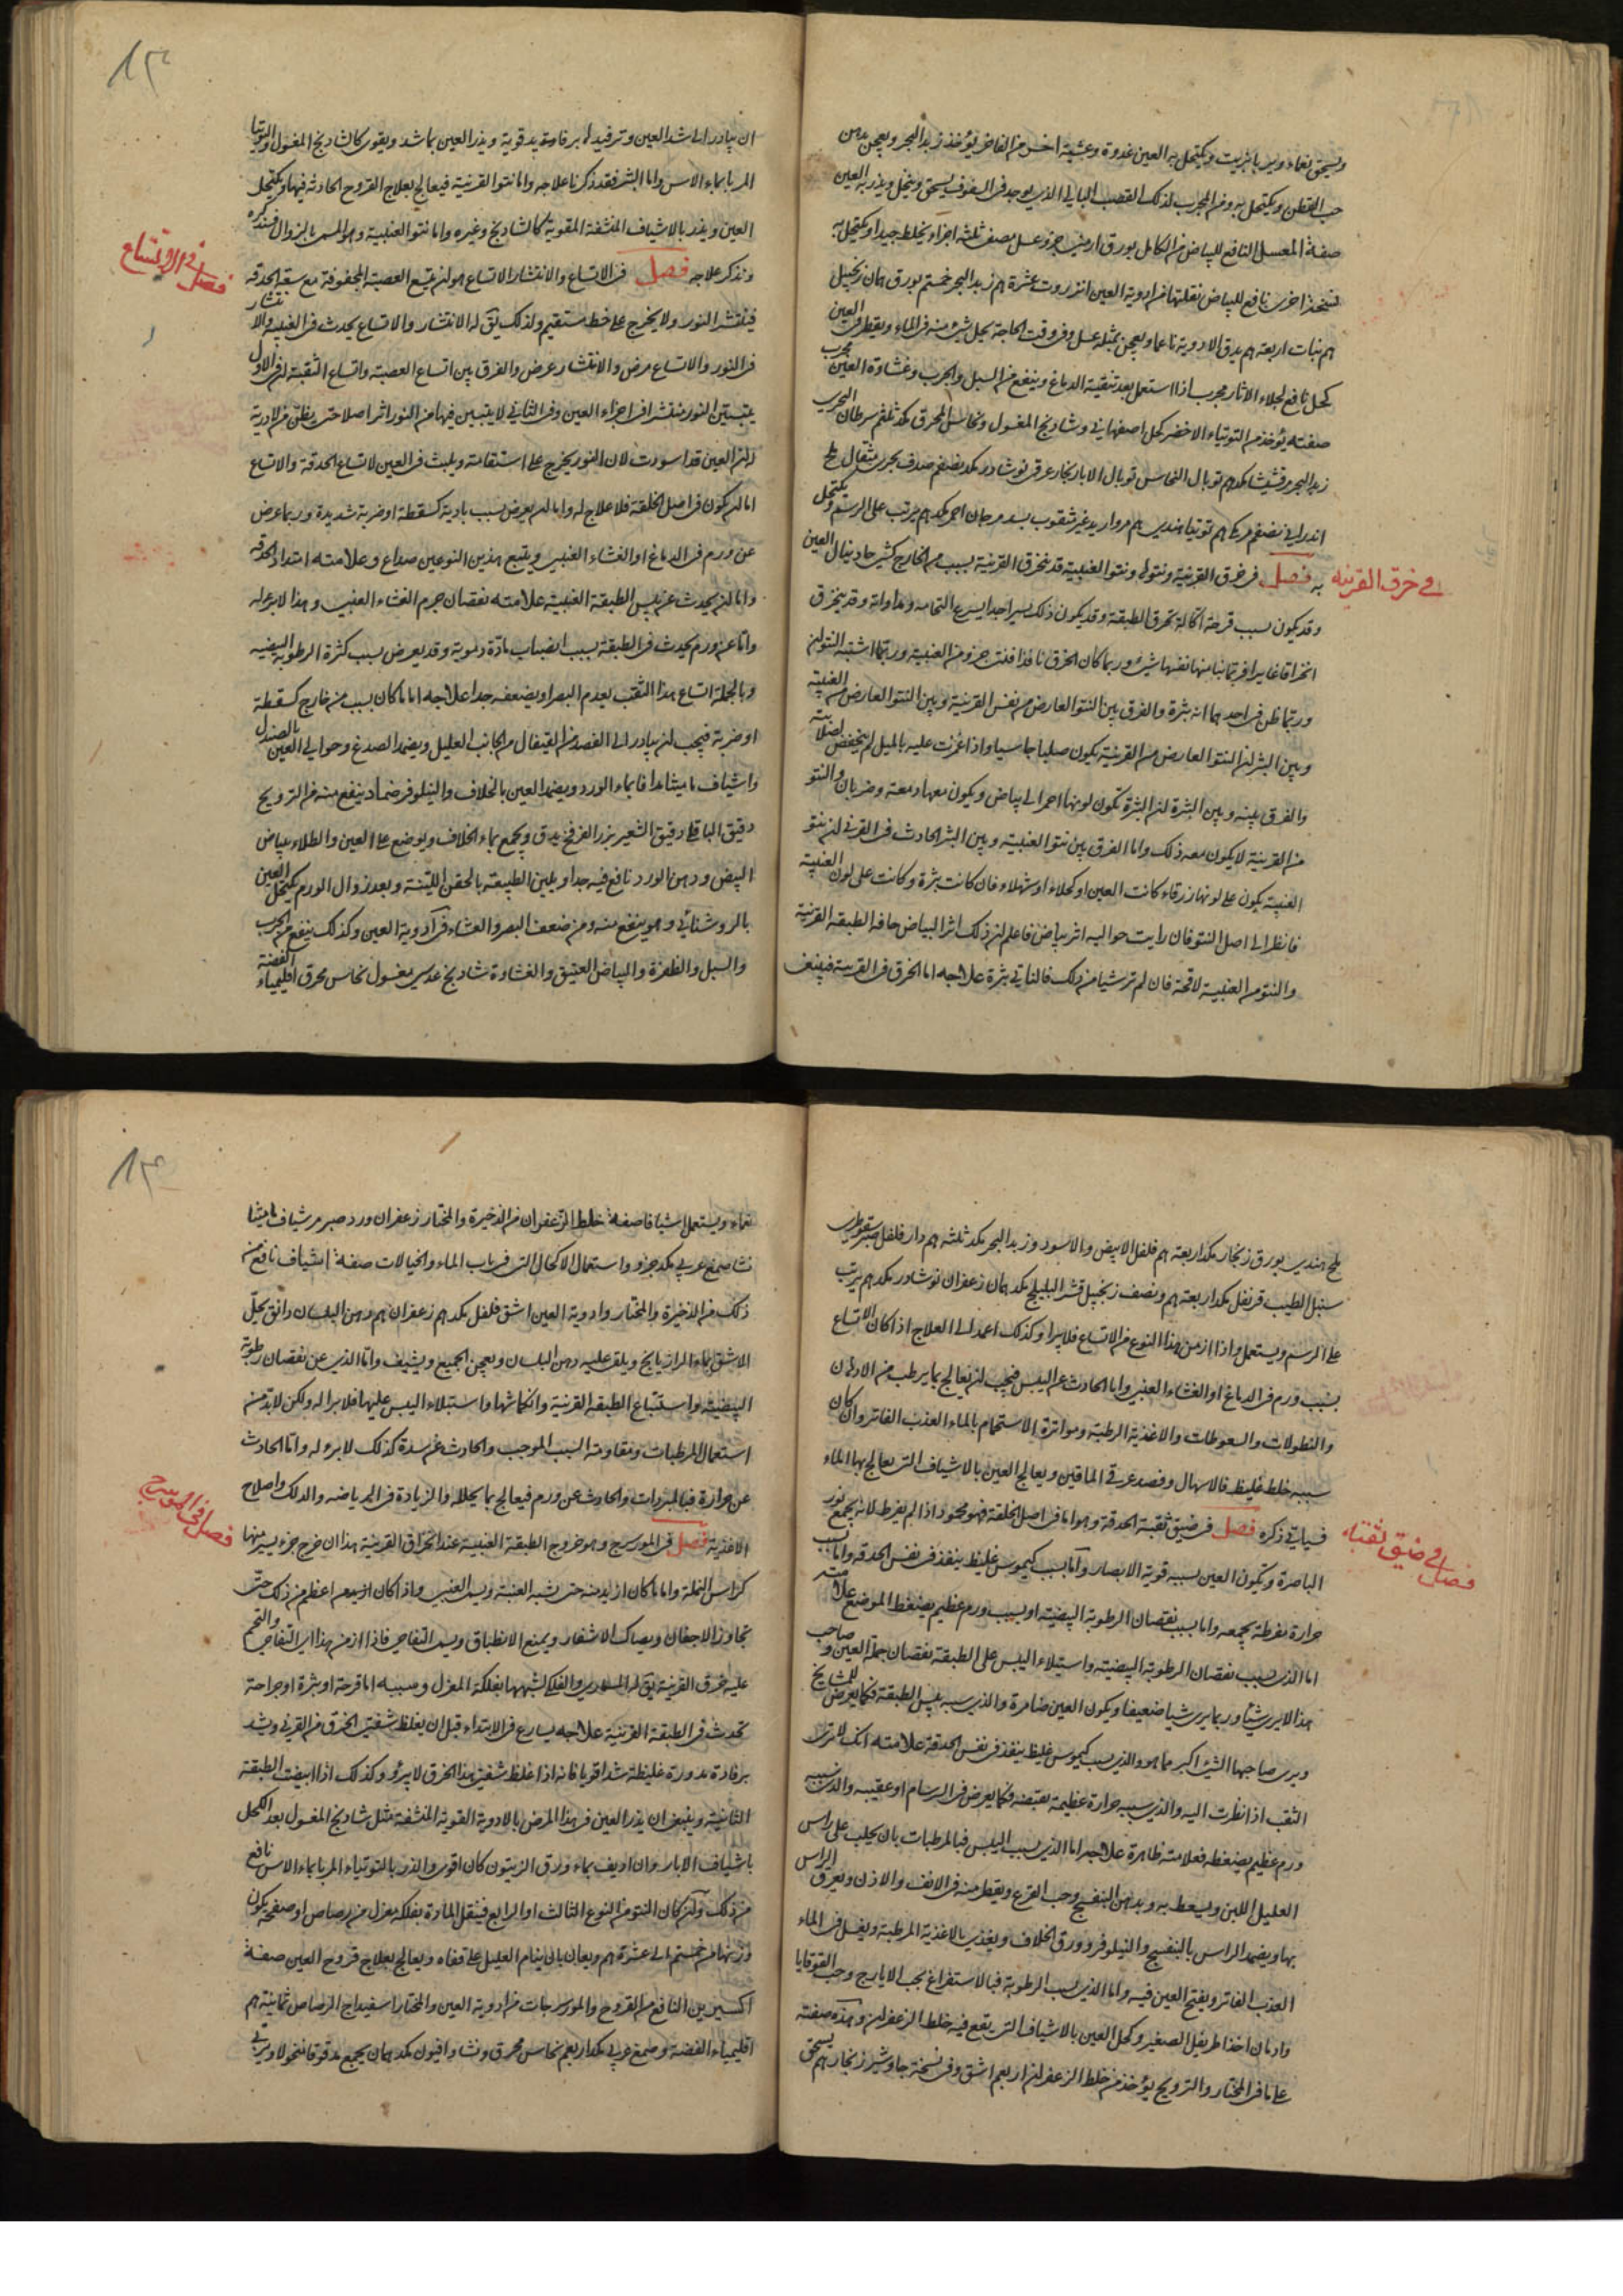 ويسحق نعماء ويربا بزيت ويكتحل به العين غدوة وعشية اخرى من الفاخر يؤخذ زبد البحر ويعجن بدهن
حب القطن ويكتحل به ومن المجرب لذلك القصب البالي الذي يوجد في السقوف يسحق وينخل ويذر به العين
صفة المعسل النافع للبياض من الكامل بورق ارمني جزو عسل مصفى ثلثة اجزاء يخلط جيدا ويكتحل به
نسخة اخرى نافع للبياض نقلتها من ادوية العين انزروت عشرة هم زبد البحر خمستهم بورق همان زنجبيل
هم نبات اربعة هم يدق الادوية ناعما ويعجن بمثله عسل وفي وقت الحاجة يحل شيء منه في الماء ويقطر في العين
كحل نافع لجلاء الاثار مجرب اذا استعمل بعد تنقية الدماغ وينفع من السبل والجرب وغشاوة العين مجرب
صفته يؤخذ من التوتياء الاخضر كحل اصفهاني وشادنج المغسول ونحاس المحرق مكد ثلثهم سرطان البحري
زبد البحر مرقشيشا مكدهم توبال النحاس توبال الابار زنجار عرقي نوشادر مكد نصفهم صدف بحري مثقال ملح
اندراني نصفهم مرمكي هم توتيا هندي هم مرواريد غير مثقوب بسد مرجان احمر مكدهم يرتب على الرسم ويكتحل
به فصل في خرق القرنية ونتوئها ونتوا العنبية قد تنخرق القرنية بسبب من الخارج كشيء حاد ينال العين
في خرق القرنيه
وقد يكون بسبب قرحة اكالة تخرق الطبقة وقد يكون ذلك يسيرا جدا يسرع التحامه ومداواته وقد ينخرق
انخراقا غايرا فربما نتا منها نفسها شيء وربما كان الخرق نافذا فنتا جزو من العنبية وربما اشتبه النتوان
وربما ظن في احدهما انه بثرة والفرق بين النتوا العارض من نفس القرنية وبين النتوا العارض من العنبية
وبين البثر ان النتو العارض من القرنية يكون صلبا جاسيا واذا غمزت عليه بالميل لم ينخفض لصلابته
والفرق بينه وبين البثرة ان البثرة تكون لونها احمر الى بياض ويكون معها دمعة وضربان والنتو
من القرنية لا يكون معه ذلك واما الفرق بين نتوا العنبية وبين البثر الحادث في القرني ان نتو
العنبية يكون على لونها زرقاء كانت العين او كحلاء او شهلاء فان كانت بثرة وكانت على لون العنبية
فانظر الى اصل النتو فان رايت حواليه اثر بياض فاعلم ان ذلك اثر البياض حافه الطبقة القرنية
والنتو من العنبية لا قحة فان لم تر شيا من ذلك فالناتي بثرة علاجه اما الخرق في القرنية فينبغي
ان يبادر الى شد العين وترفيده برفادة يد قوية ويذر العين بما شد ويقوي كالشادنج المغسول والتوتيا
المربا بماء الاس واما البثر فقد ذكرنا علاجه واما نتوا القرنية فيعالج بعلاج القروح الحادثة فيها ويكتحل
العين ويذر بالاشياف المنشفة المقوية كالشادنج وغيره واما نتوا العنبية وهو المسمى بالزوال فسنذكره
ونذكر علاجه فصل في الاتساع والانتشار الاتساع هو ان يتسع العصبة المجوفة مع سعة الحدقه
فصل في الاتساع
فينتشر النور ولا يخرج على خط مستقيم ولذلك يق له الانتشار والاتساع يحدث في العنبيه والانتشار
في النور والاتساع مرض والانتشار عرض والفرق بين اتساع العصبة واتساع الثقبة ان في الاول
يتبين النور منتشرا في اجزاء العين وفي الثاني لا يتبين فيها من النور اثر اصلا حتى يظن من لا درية
له ان العين قد اسودت لان النور يخرج على استقامته ويلبث في العين لاتساع الحدقة والاتساع
اما ان يكون في اصل الخلقة فلا علاج له واما ان يعرض بسبب بادية كسقطة او ضربة شديدة وربما عرض
عن ورم في الدماغ او الغشاء العنبي ويتبع هذين النوعين صداع وعلامته امتداد الحدقه
واما ان يحدث عن يبس الطبقة العنبية علامته نقصان جرم الغشاء العنبي وهذا لا برء له
واما عن ورم يحدث في الطبقة بسبب انصباب مادة دموية وقد يعرض بسبب كثرة الرطوبة البيضيه
وبالجملة اتساع هذا الثقب يعدم البصر او يضعفه جدا علاجه اما ما كان بسبب من خارج كسقطة
او ضربة فيجب ان يبادر الى الفصد من القيفال من الجانب العليل ويضمد الصدغ وحوالي العين بالصندل
واشياف ماميثا مدافا بماء الورد ويضمد العين بالخلاف والنيلوفر ضماد ينفع منه من الترويح
دقيق الباقلا دقيق الشعير بزر الفرفخ يدق ويجمع بماء الخلاف ويوضع على العين والطلاء ببياض
البيض ودهن الورد نافع فيه جدا ويلين الطبيعة بالحقن اللينة وبعد زوال الورم يكتحل العين
بالروشنائي وهو ينفع منه ومن ضعف البصر والعشاء في ادوية العين وكذلك ينفع من الجرب
والسبل والظفرة والبياض العتيق والغشاوة شادنج عدسي مغسول نحاس محرق اقليمياء الفضة
ملح هندي بورق زنجار مكد اربعة هم فلفل الابيض والاسود وزبد البحر مكد ثلثه هم دار فلفل صبر سقوطري
سنبل الطيب قرنفل مكد اربعة هم ونصف زنجبيل قشر البليلج مكد همان زعفران نوشادر مكد هم يرتب
على الرسم ويستعمل واذا ازمن هذا النوع من الاتساع فلا يبرا وكذلك اعمد الى العلاج اذا كان الاتساع
بسبب ورم في الدماغ او الغشاء العنبي واما الحادث عن اليبس فيجب ان يعالج بما يرطب من الادهان
والنطولات والسعوطات والاغذية الرطبة ومواترة الاستحمام بالماء العذب الفاتر وان كان
سببه خلط غليظ فالاسهال وفصد عرقي الماقين ويعالج العين بالاشياف التي يعالج بها الماء
فسياتي ذكره فصل في ضيق ثقبة الحدقة وهو اما في اصل الخلقة فهو محمود اذا لم يفرط لانه يجمع نور
فصل في ضيق ثقبته
الباصرة ويكون العين بسببه قوية الابصار واما بسبب كيموس غليظ ينفذ في نفس الحدقه واما بسبب
حرارة مفرطة يجمعه واما بسبب نقصان الرطوبة البيضية او بسبب ورم عظيم يضغط الموضع علامته
اما الذي بسبب نقصان الرطوبة البيضية واستيلاء اليبس على الطبقة نقصان جملة العين وصاحب
هذا لا يرى شيئا وربما يرى شيا ضعيفا ويكون العين ضامرة والذي سببه يبس الطبقة فكما يعرض للمشايخ
ويرى صاحبها الشيء اكبر مما هو والذي بسبب كيموس غليظ ينفذ في نفس الحدقة علامته انك لا ترى
الثقب اذا نظرت اليه والذي سببه حرارة عظيمة تقبضه فكما يعرض في البرسام او عقيبه والذي سببه
ورم عظيم يضغطه فعلامته ظاهرة علاجه اما الذي بسبب اليبس فبالمرطبات بان يحلب على راس
العليل اللبن ويسعط به وبدهن البنفسج وحب القرع ويقطر منه في الانف والاذن ويعرق الراس
بها ويضمد الراس بالبنفسج والنيلوفر وورق الخلاف ويغذى بالاغذية المرطبة ويغسل في الماء
العذب الفاتر ويفتح العين فيه واما الذي بسبب الرطوبة فبالاستفراغ بحب الايارج وحب القوقايا
وادمان اخذ اطريفل الصغير وكحل العين بالاشياف التي يقع فيه خلط الزعفران وهذه صفته
على ما في المختار والترويح يؤخذ من خلط الزعفران اربعهم اشق وفي نسخة جاوشير زنجار هم يسحق
نعماء ويستعمل اشيافا صفة خلط الزعفران من الذخيرة والمختار زعفران ورد صبر مر شياف ماميثا
نشا صمغ عربي مكد جزو واستعمال الاكحال التي في باب الماء والخيالات صفة اشياف نافع من
ذلك من الذخيرة والمختار وادوية العين اشق فلفل مكد هم زعفران هم دهن البلسان دانق يحل
الاشق بماء الرازيانج ويلقى عليه دهن البلسان ويعجن الجميع ويشيف واما الذي عن نقصان رطوبة
البيضية واستتباع الطبقة القرنية وانكماشها واستيلاء اليبس عليها فلا برا له ولكن لا بد من
استعمال المرطبات ومقاومة السبب الموجب والحادث عن سدة كذلك لا برو له واما الحادث
عن حرارة فبالمبردات والحادث عن ورم فيعالج بما يحلله والزيادة في الرياضه والدلك واصلاح
الاغذية فصل في المورسرج وهو خروج الطبقة العنبية عند انخراق القرنية هذا ان خرج جزء يسير منها
فصل في المورسرج
كراس النملة واما ما كان ازيد منه حتى يشبه العنبة ويسمى العنبي واذا كان اعظم من ذلك حتى
تجاوز الاجفان ويصاك الاشفار ويمنع الانطباق ويسمى التفاحي فاذا ازمن هذا اي التفاحي والتحم
عليه خرق القرنية يق له المسماري والفلكي لشبهها بفلكة المغزل وسببه اما قرحة او بثرة او جراحة
تحدث في الطبقة القرنية علاجه يسارع في الابتداء قبل ان يغلظ شفتي الخرق من القرني ويشد
برفادة مدورة غليظة شدا قويا فانه اذا غلظ شفتي هذا الخرق لا يبرؤ وكذلك اذا ابيضت الطبقة
الثانية وينبغي ان يذر العين في هذا المرض بالادوية القوية المنشفة مثل شادنج المغسول بعد الكحل
باشياف الابار وان اديف بماء ورق الزيتون كان اقوى والذر بالتوتياء المربا بماء الاس نافع
من ذلك وان كان النتو من النوع الثالث او الرابع فيثقل المادة بفلكة مغزل من رصاص او صفيحة يكون
وزنها من خمستهم الى عشرة هم ويعان بان ينام العليل على قفاه ويعالج بعلاج قروح العين صفة
اكسيرين النافع من القروح والمورسرجات من ادوية العين والمختار اسفيداج الرصاص ثمانية هم
اقليمياء الفضة وصمغ عربي مكد اربعهم نحاس محرق ونشا وافيون مكد همان يجمع مدقوقا منخولا ويربى